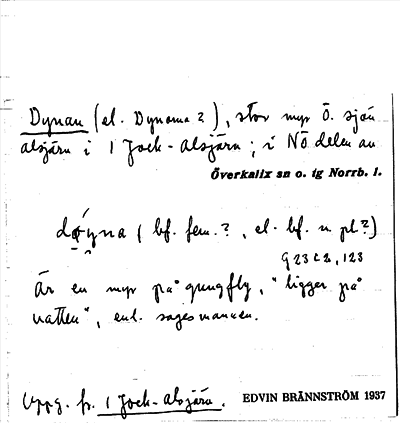 Dynau (el. Dynama?), stor myr Ö. sjön
Alsjärn i 1 Jock-Alsjärn; i NÖ delen av
Överkalix sn o. tg Norrb. l.
døyna (bf. fem.?, el. bf. n pl?)
G 23 c 2, 123
Är en myr på gungfly, "ligger på
vatten", enl. sagesmannen.
Uppg. fr. 1 Jock-Alsjärn.
EDVIN BRÄNNSTRÖM 1937